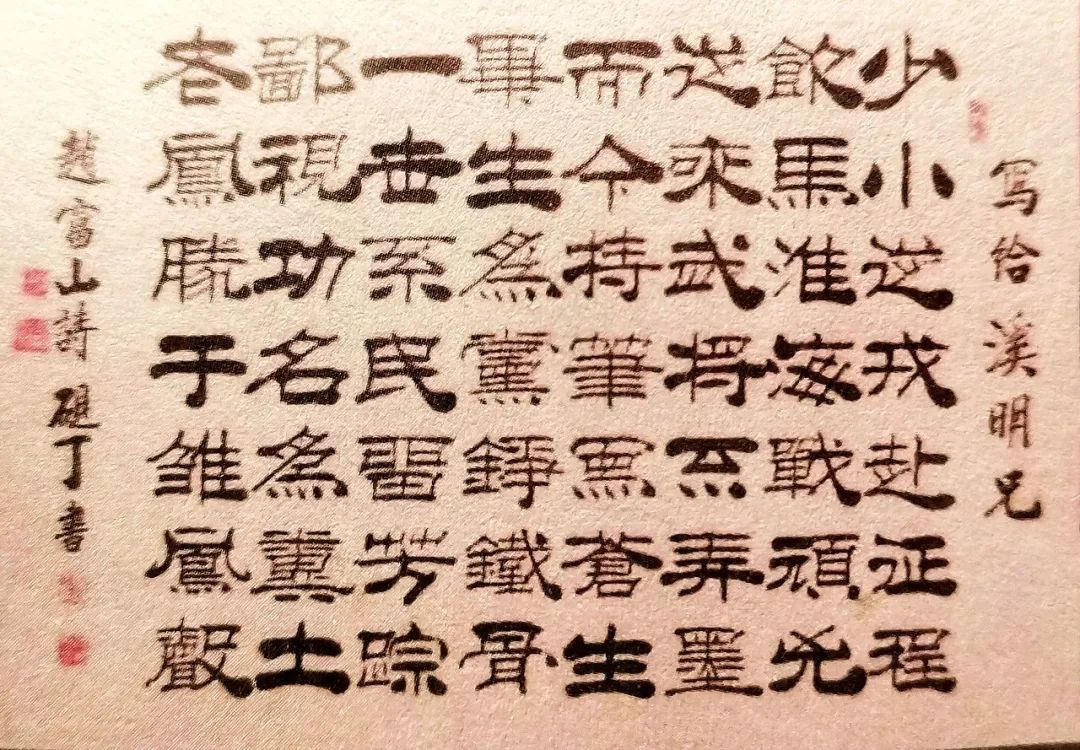 写给漢明兄
少小從戎赴征程
飲馬淮海戰頑兇
從來武將不弄墨
而今持筆寫蒼生
畢生為黨錚鐵骨
一世系民留芳踪
鄙視功名為糞土
老鳳勝于雛鳳聲
趙富山詩 硯丁書